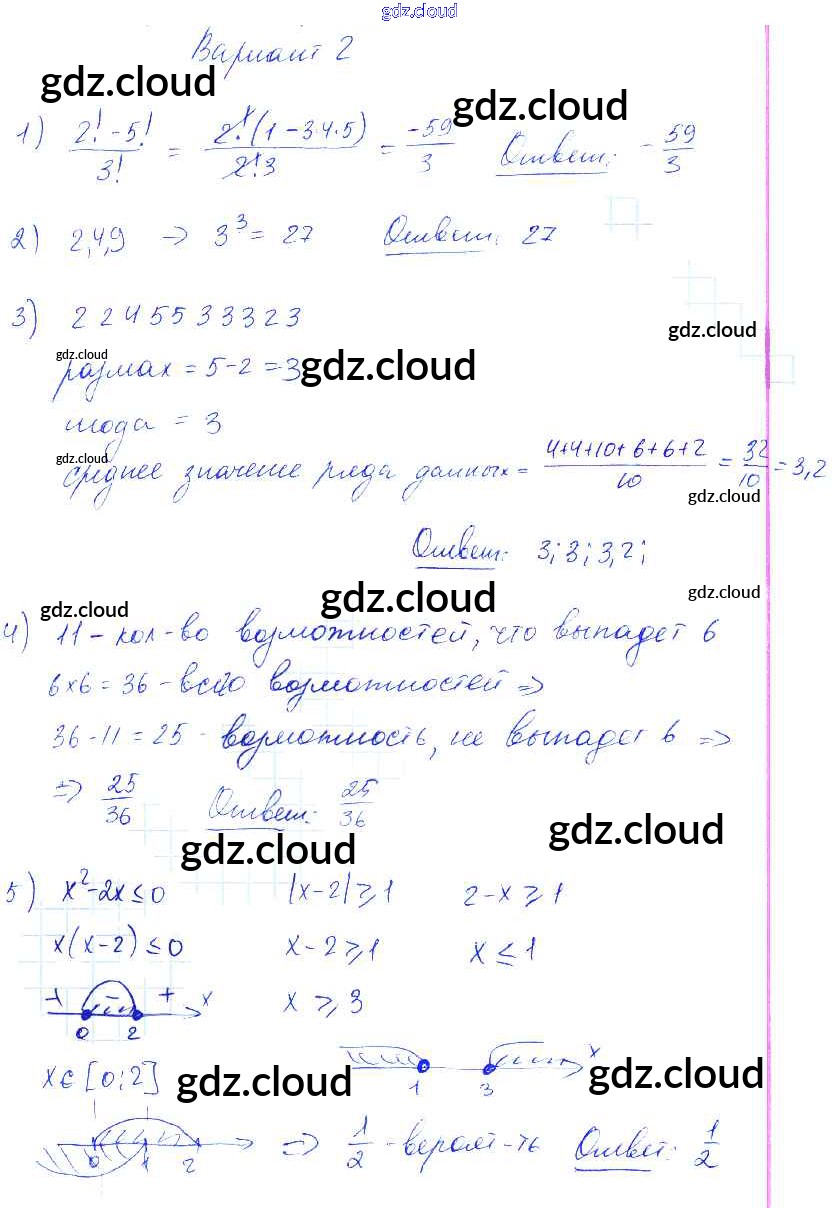 gdz.cloud
Вариант 2
gdz.cloud
gdz.cloud
1) (2! - 5!)/3! = (2!(1 - 3·4·5))/(2!·3) = -59/3 Ответ: -59/3
2) 2,4,9 → 3³ = 27 Ответ: 27
3) 2 2 4 5 5 3 3 3 2 3
gdz.cloud
gdz.cloud
размах = 5-2 = 3
gdz.cloud
мода = 3
gdz.cloud
среднее значение ряда данных = (4+4+10+6+6+2)/10 = 32/10 = 3,2
gdz.cloud
Ответ: 3; 3; 3,2;
gdz.cloud
gdz.cloud
gdz.cloud
4) 11 - кол-во возможностей, что выпадет 6
6×6 = 36 - всего возможностей =>
36 - 11 = 25 - возможность, не выпадет 6 =>
=> 25/36 Ответ: 25/36
gdz.cloud
gdz.cloud
5) x² - 2x ≤ 0 |x-2| ≥ 1 2-x ≥ 1
x(x-2) ≤ 0 x-2 ≥ 1 x ≤ 1
+ - + x x ≥ 3
0 2
x ∈ [0;2] 1 3 x
gdz.cloud
gdz.cloud
0 1 2 => 1/2 - вероят-ть Ответ: 1/2